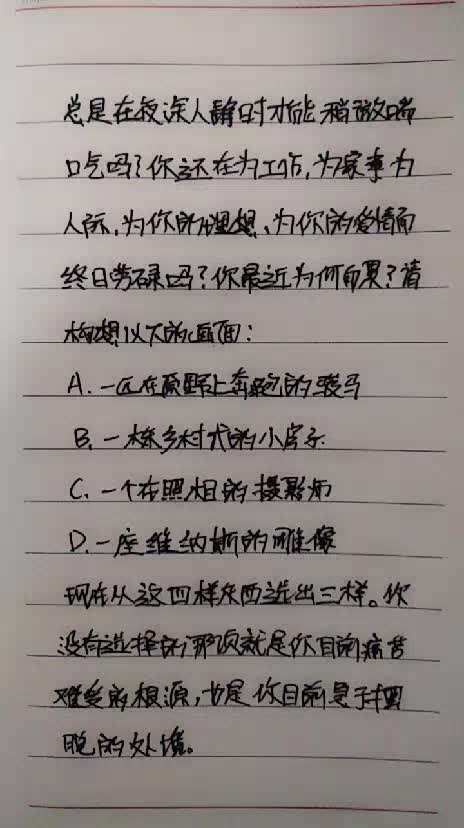 总是在夜深人静时才能稍微喘
口气吗？你还在为工作，为家事为
人际，为你的理想、为你的爱情而
终日劳碌吗？你最近为何而累？请
构想以下的画面：
A. 一匹在原野上奔跑的骏马
B. 一栋乡村式的小房子.
C. 一个在照相的摄影师
D. 一座维纳斯的雕像
现在从这四样东西选出三样。你
没有选择的那项就是你目前痛苦
难受的根源，也是你目前急于摆
脱的处境。